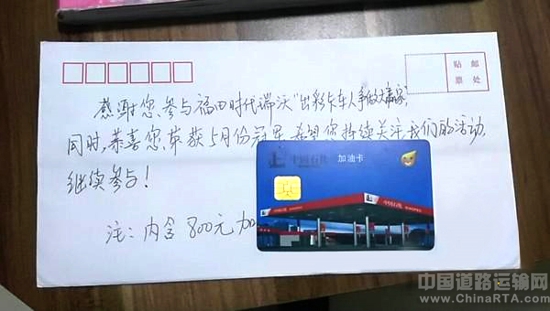 贴 邮
票 处
感谢您参与福田时代瑞沃"出彩卡车人争做大赢家",
同时,恭喜您荣获5月份冠军,希望您持续关注我们的活动,
继续参与!
中国石化 加油卡
注:内含800元加
中国道路运输网
www.ChinaRTA.com